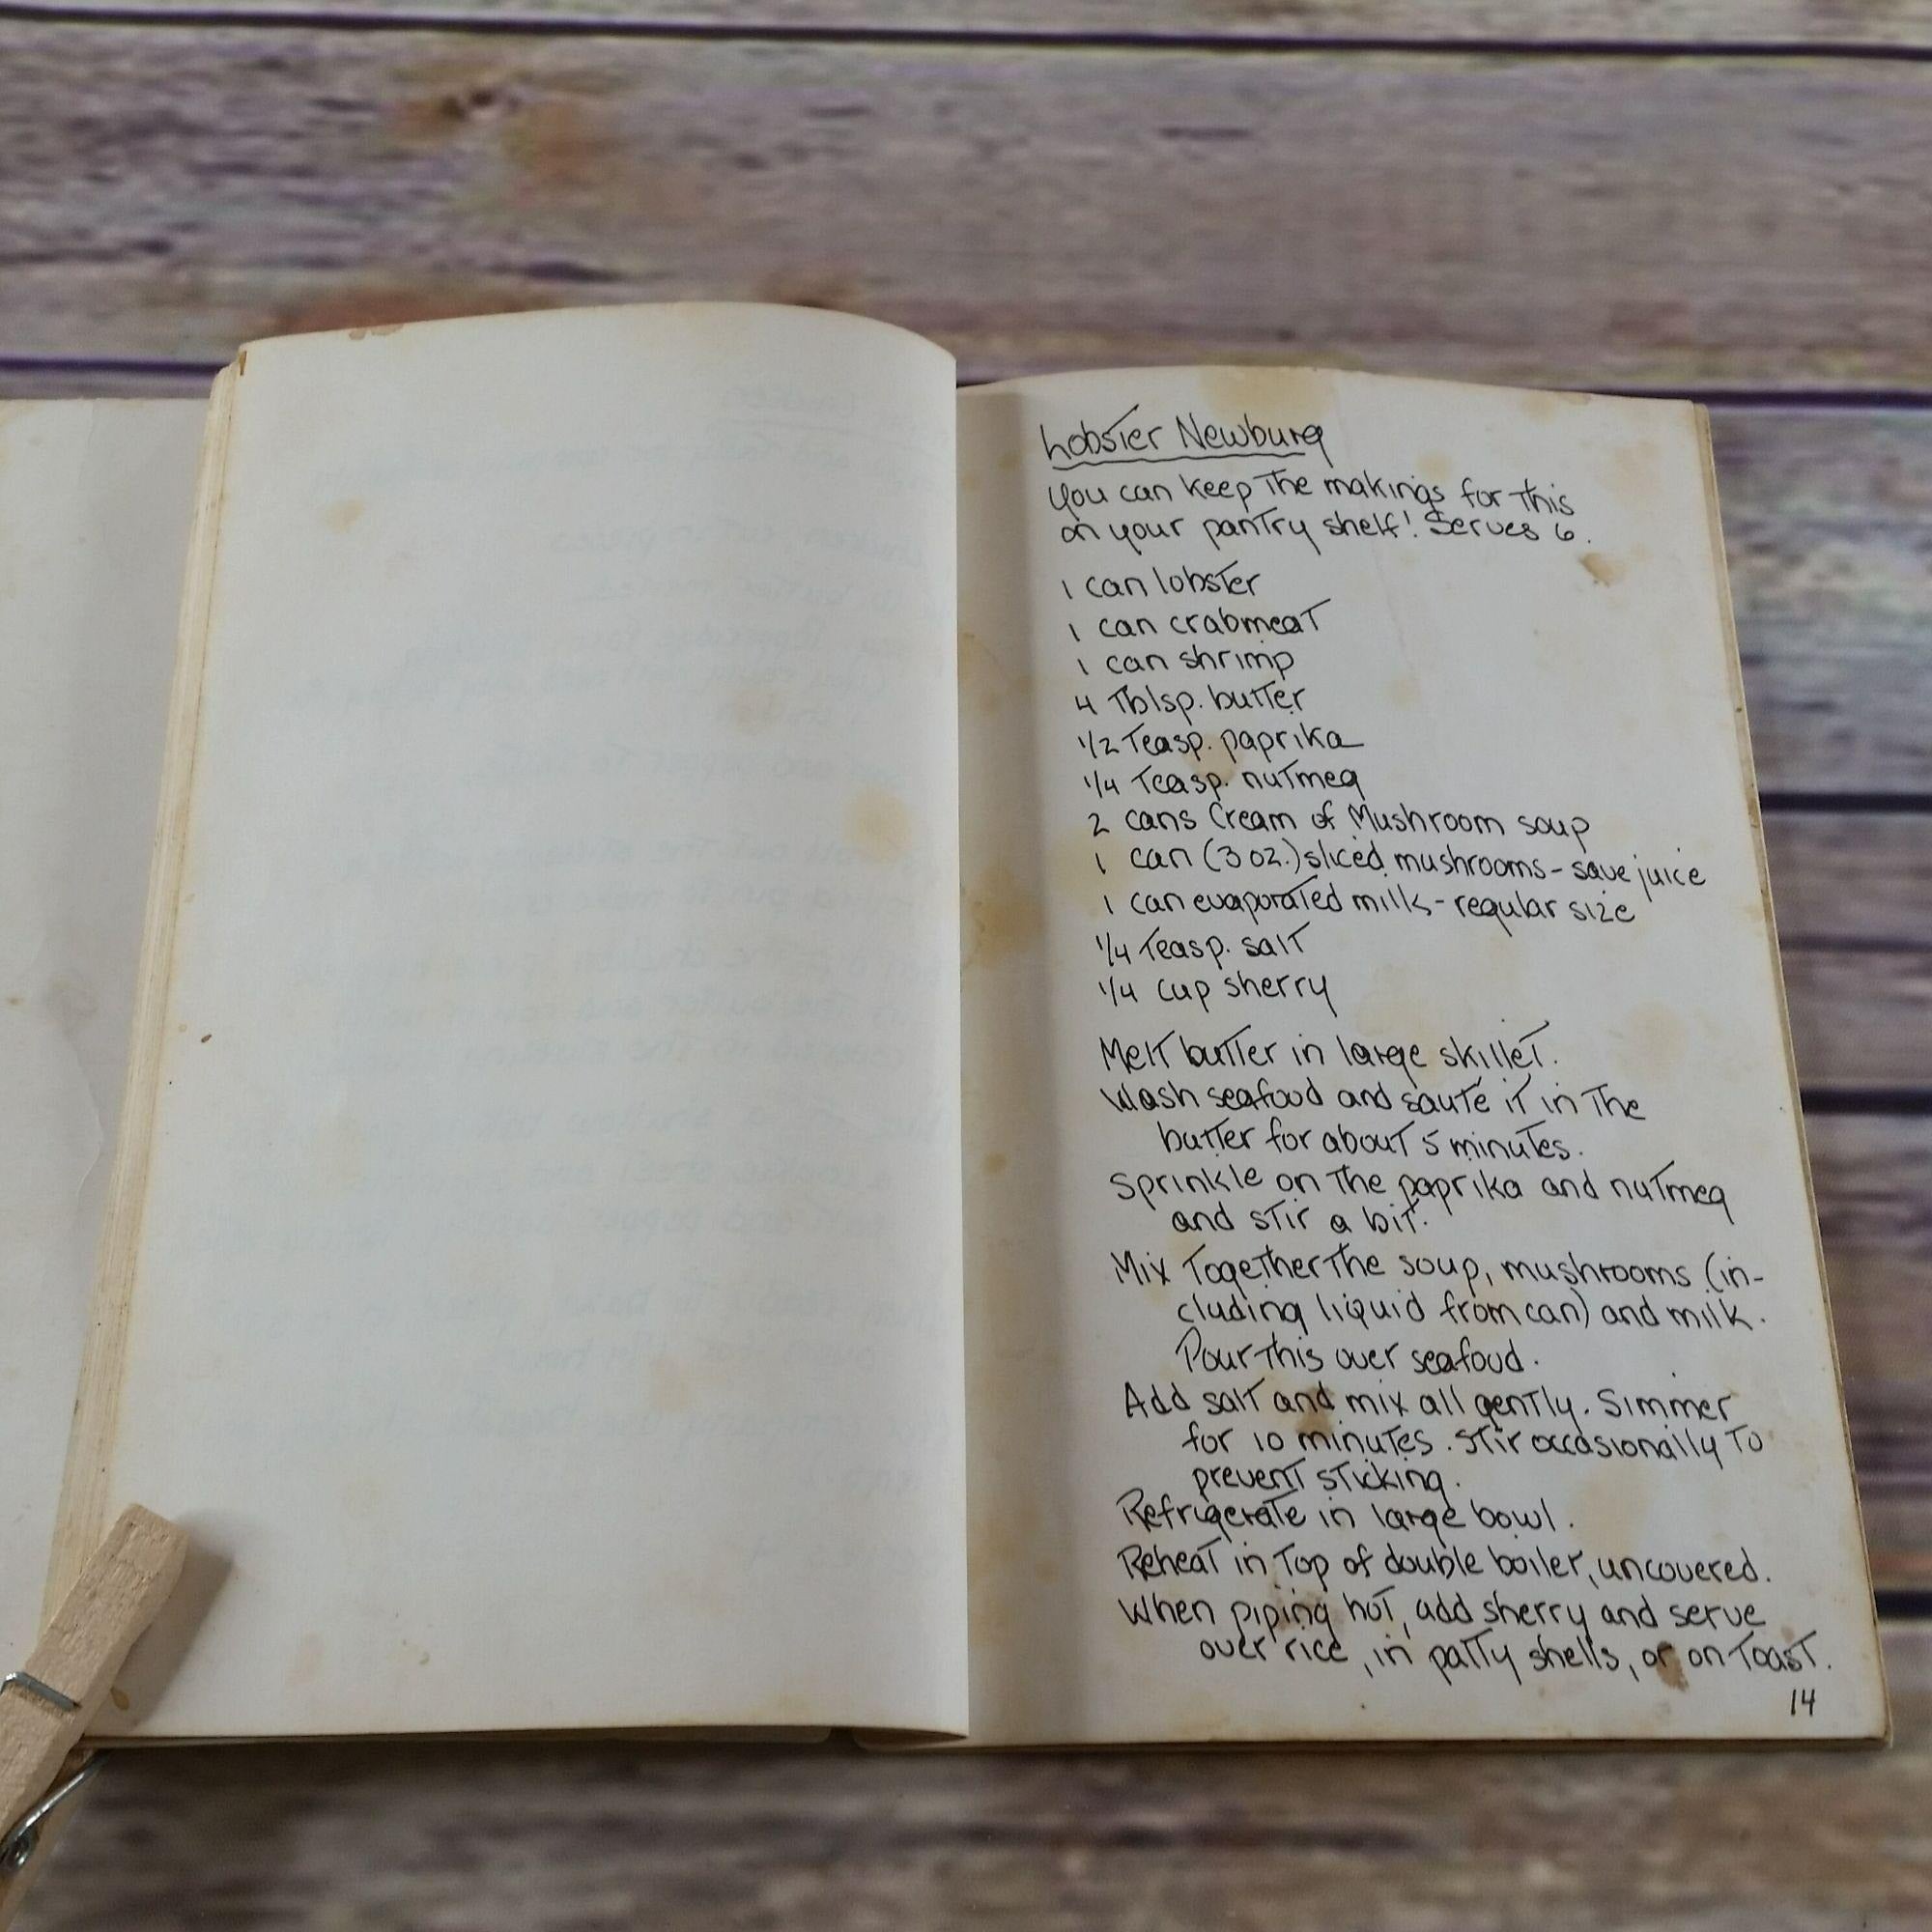 Lobster Newburg
You can keep the makings for this
on your pantry shelf! Serves 6.
1 can lobster
1 can crabmeat
1 can shrimp
4 Tblsp. butter
1/2 Teasp. paprika
1/4 Teasp. nutmeg
2 cans Cream of Mushroom soup
1 can (3 oz.) sliced mushrooms - save juice
1 can evaporated milk - regular size
1/4 Teasp. salt
1/4 cup sherry
Melt butter in large skillet.
Wash seafood and sauté it in the
butter for about 5 minutes.
Sprinkle on the paprika and nutmeg
and stir a bit.
Mix together the soup, mushrooms (in-
cluding liquid from can) and milk.
Pour this over seafood.
Add salt and mix all gently. Simmer
for 10 minutes. Stir occasionally to
prevent sticking.
Refrigerate in large bowl.
Reheat in top of double boiler, uncovered.
When piping hot, add sherry and serve
over rice, in patty shells, or on toast.
14